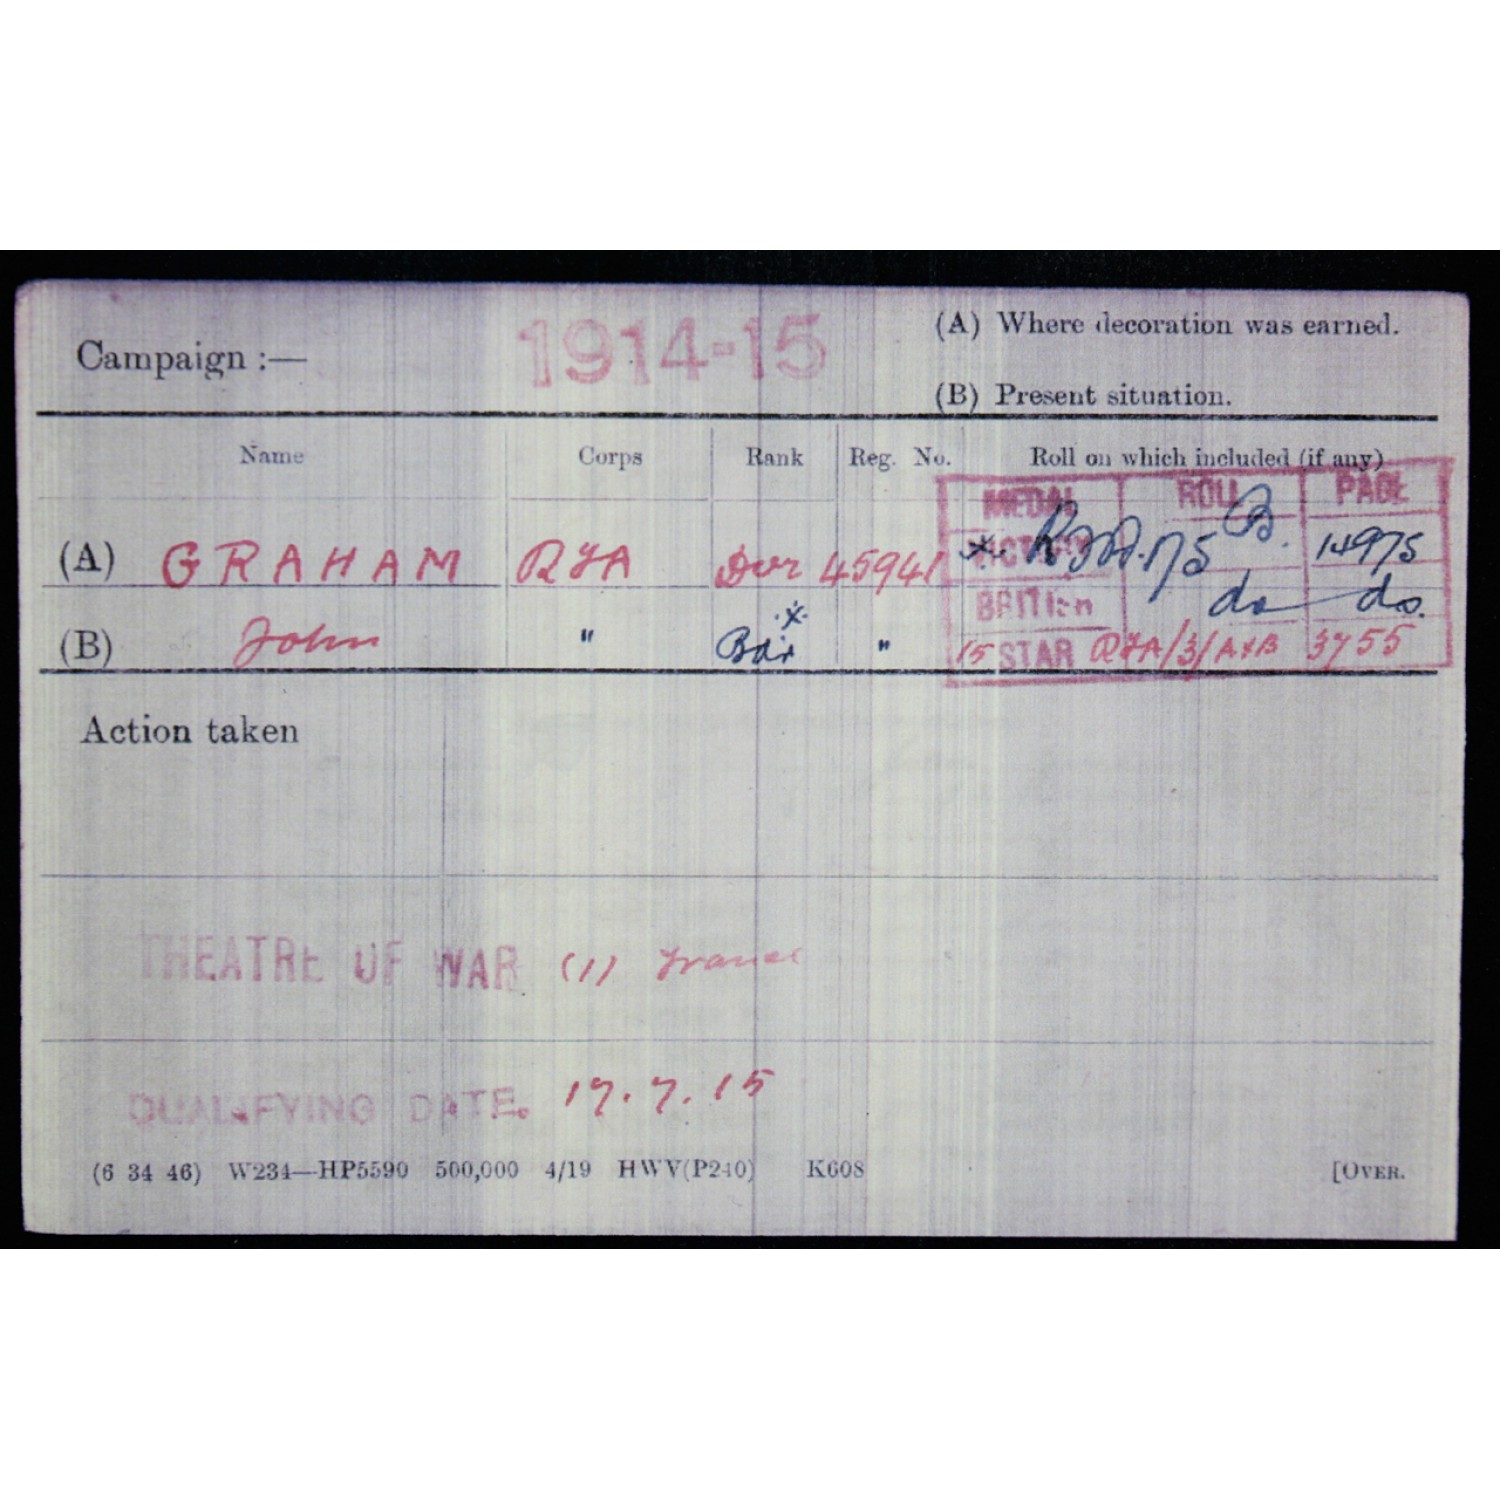 Campaign :— 1914-15
(A) Where decoration was earned.
(B) Present situation.
Name Corps Rank Reg. No. Roll on which included (if any)
MEDAL ROLL PAGE
(A) GRAHAM RFA Dvr 45941 * VICTORY B 14975
BRITISH do do.
(B) John " * Bdr " 15 STAR RFA/3/A&B 3755
Action taken
THEATRE OF WAR (1) France
QUALIFYING DATE. 17.7.15
(6 34 46) W234—HP5590 500,000 4/19 HWV(P240) K608 [OVER.